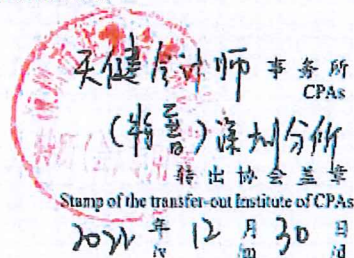 天健会计师事务所
CPAs
(特普)深圳分所
转出协会盖章
Stamp of the transfer-out Institute of CPAs
年12月30日
/y /m /d